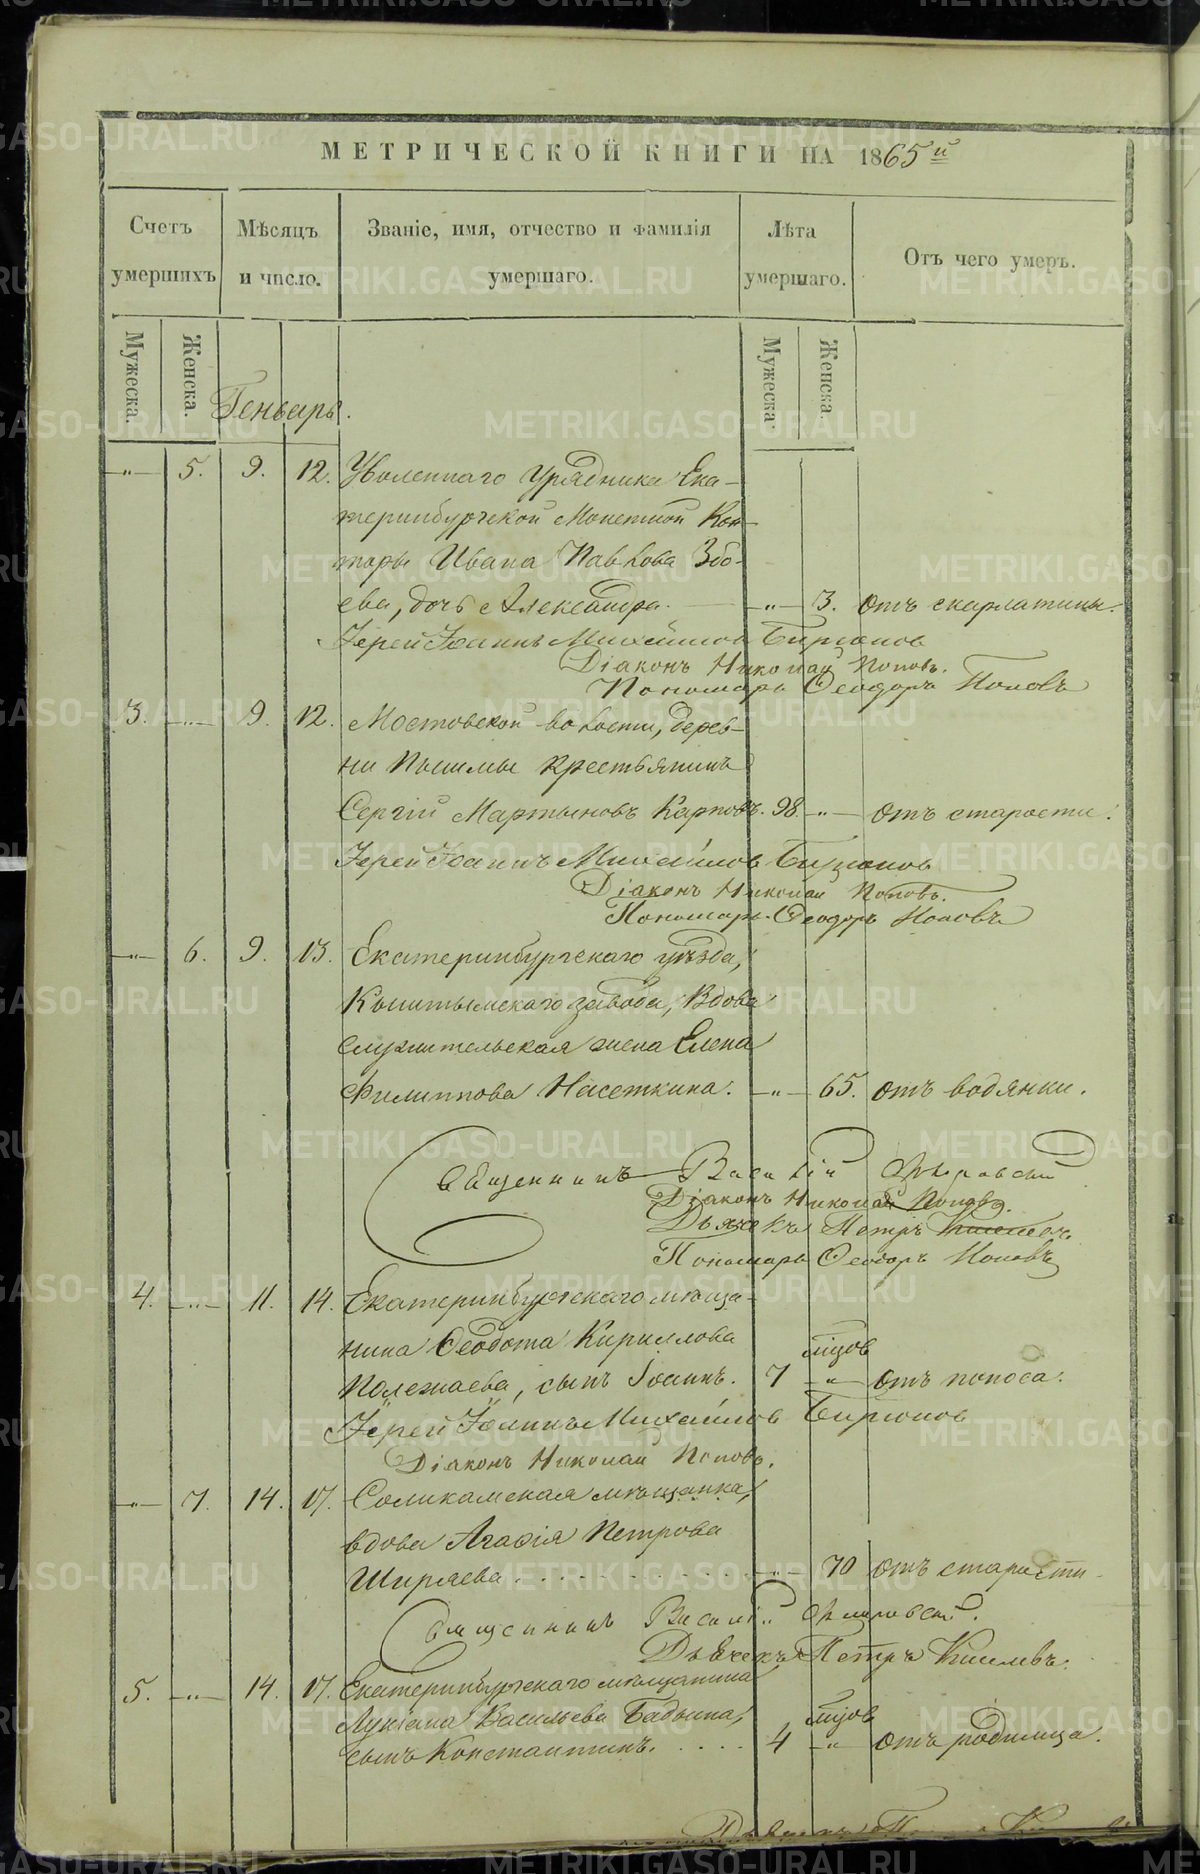 МЕТРИЧЕСКОЙ КНИГИ НА 1865й
Счетъ умершихъ
Мѣсяцъ и число.
Званіе, имя, отчество и фамилія умершаго.
Лѣта умершаго.
Отъ чего умеръ.
Мужеска.
Женска.
Мужеска
Женска.
Геньварь.
-„- 5. 9. 12. Уволеннаго Урядника Ека-
теринбургской Монетной Кон-
торы Ивана Павлова Збо-
ева, дочь Александра. -„- 3. отъ скарлатины.
Іерей Іоаннъ Михайловъ Бирюковъ
Діаконъ Николай Поповъ.
Пономарь Ѳеодоръ Поповъ
3. -„- 9. 12. Мостовской волости, дерев-
ни Пышмы крестьянинъ
Сергій Мартыновъ Карповъ. 98. -„- отъ старости.
Іерей Іоаннъ Михайловъ Бирюковъ
Діаконъ Николай Поповъ.
Пономарь Ѳеодоръ Поповъ
-„- 6. 9. 13. Екатеринбургскаго уѣзда,
Кыштымскаго завода, Вдова
служительская жена Елена
Филиппова Насеткина. -„- 65. отъ водянки.
Священникъ Василій
Діаконъ Николай Поповъ.
Дьячекъ Петръ Киселевъ.
Пономарь Ѳеодоръ Поповъ
4. -„- 11. 14. Екатеринбургскаго мѣща-
нина Ѳеодота Кириллова
Полежаева, сынъ Іоаннъ. 7 мцов -„- отъ поноса.
Іерей Іоаннъ Михайловъ Бирюковъ
Діаконъ Николай Поповъ.
-„- 7. 14. 17. Соликамская мѣщанка,
вдова Агафія Петрова
Ширяева. -„- 70 отъ старости
Священникъ Василій
Дьячекъ Петръ Киселевъ.
5. -„- 14. 17. Екатеринбургскаго мѣщанина
Лукіана Васильева Бадьина,
сынъ Константинъ. 4 мцов -„- отъ родимца.
METRIKI.GASO-URAL.RU